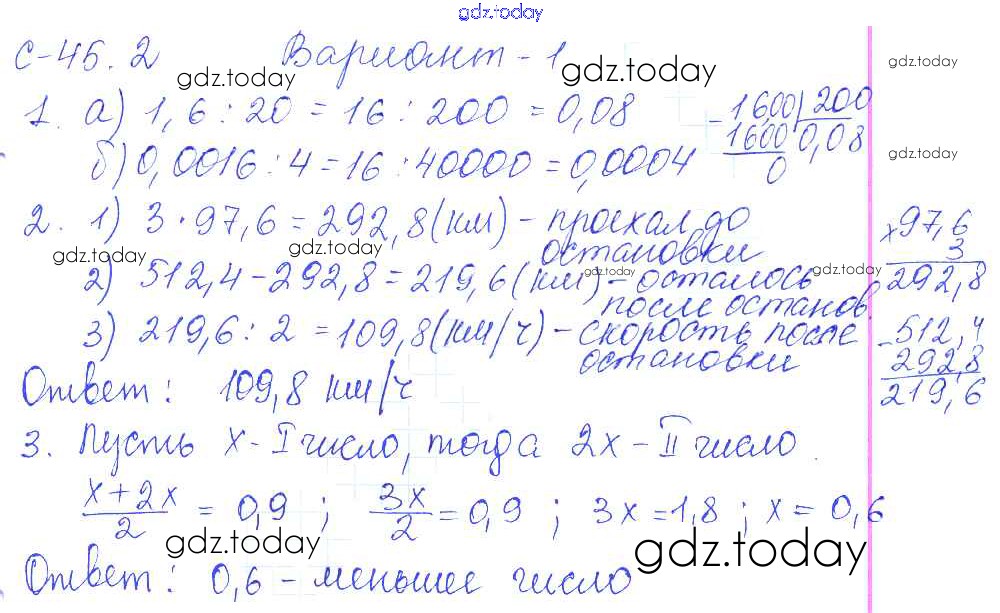 gdz.today
С-45.2 Вариант-1
gdz.today gdz.today gdz.today
1. а) 1,6 : 20 = 16 : 200 = 0,08
- 1600 | 200
1600 0,08
0
б) 0,0016 : 4 = 16 : 40000 = 0,0004
gdz.today
2. 1) 3 · 97,6 = 292,8 (км) - проехал до
остановки
× 97,6
3
292,8
gdz.today gdz.today gdz.today gdz.today
2) 512,4 - 292,8 = 219,6 (км) - осталось
после останов.
3) 219,6 : 2 = 109,8 (км/ч) - скорость после
остановки
- 512,4
292,8
219,6
Ответ: 109,8 км/ч
3. Пусть x - I число, тогда 2x - II число.
x + 2x / 2 = 0,9 ; 3x / 2 = 0,9 ; 3x = 1,8 ; x = 0,6
gdz.today gdz.today
Ответ: 0,6 - меньшее число